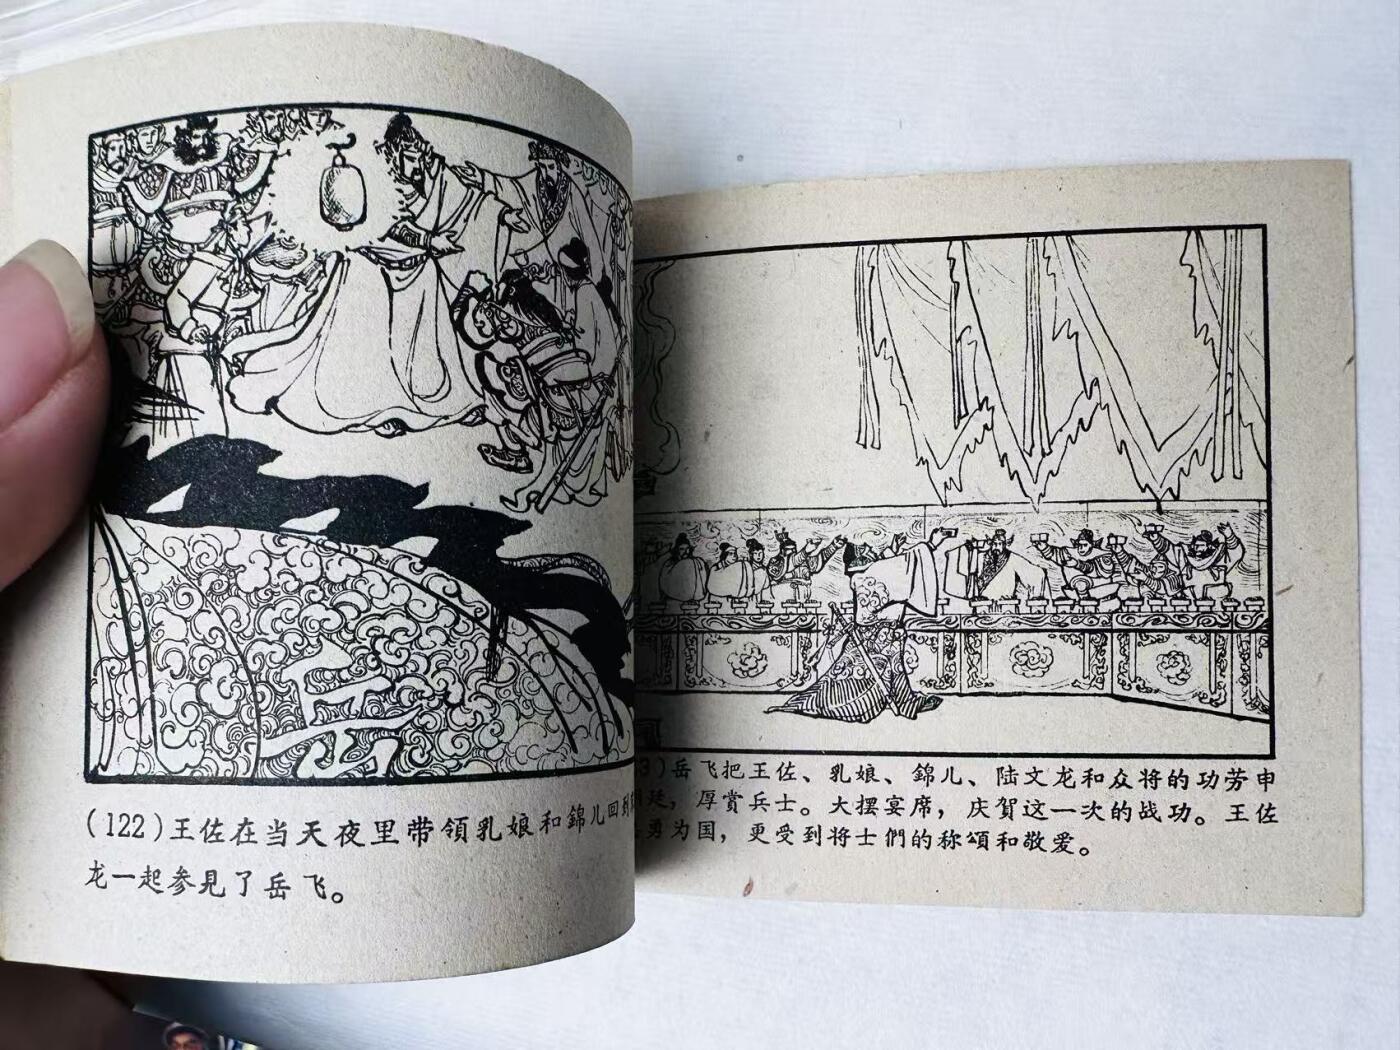 (122)王佐在当天夜里带領乳娘和錦儿回到
龙一起参見了岳飞。
3)岳飞把王佐、乳娘、錦儿、陆文龙和众将的功劳申
廷，厚賞兵士。大摆宴席，庆賀这一次的战功。王佐
勇为国，更受到将士們的称頌和敬爱。